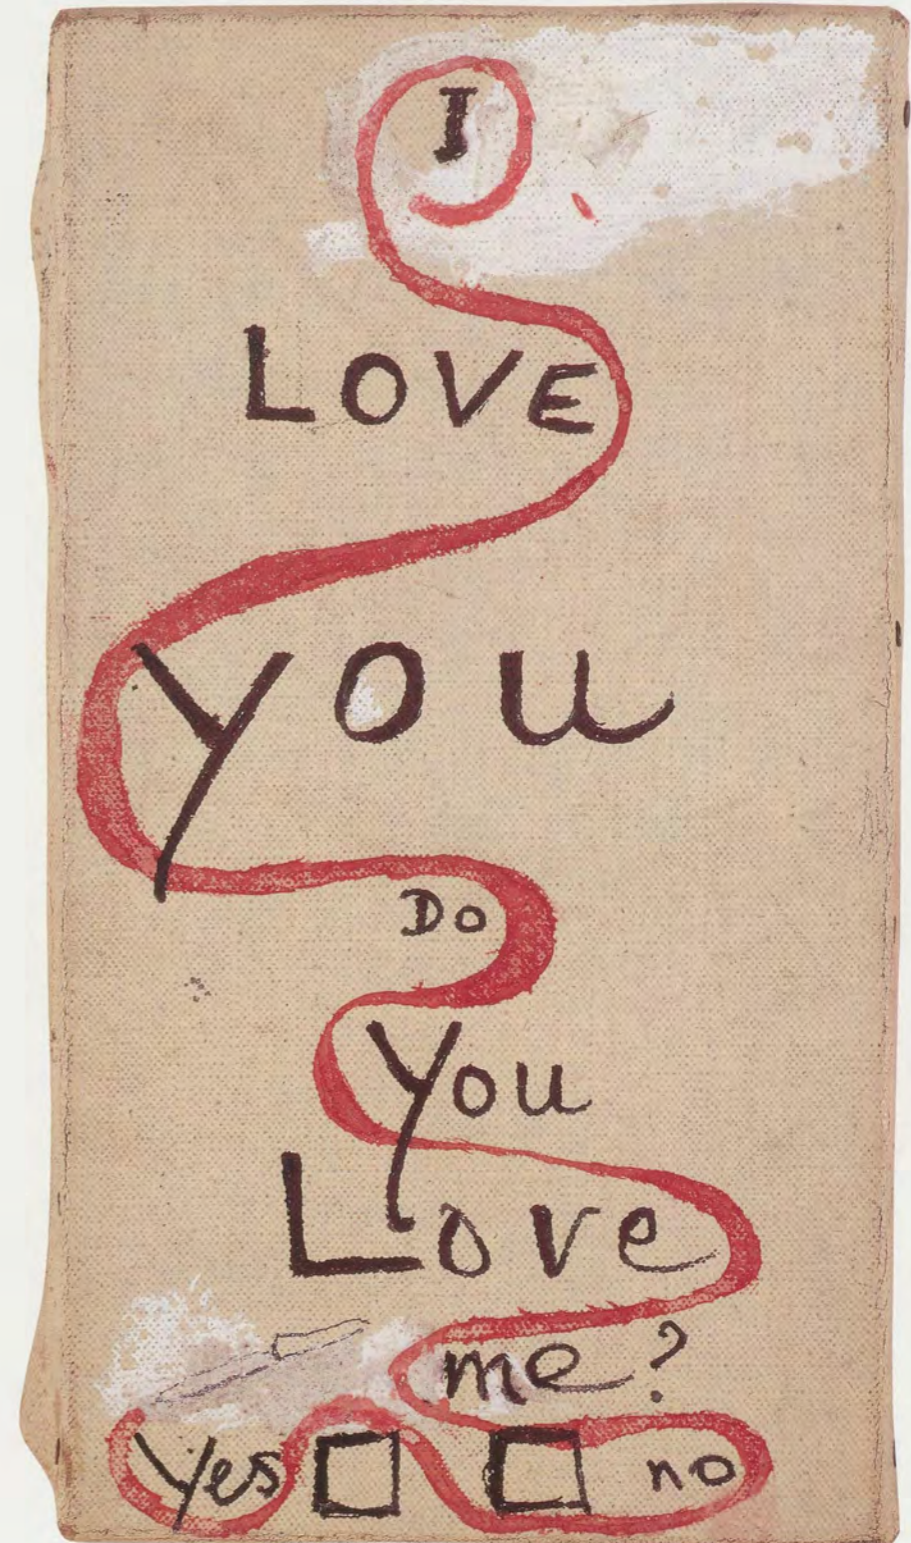 I
LOVE
you
Do
you
Love
me?
Yes no